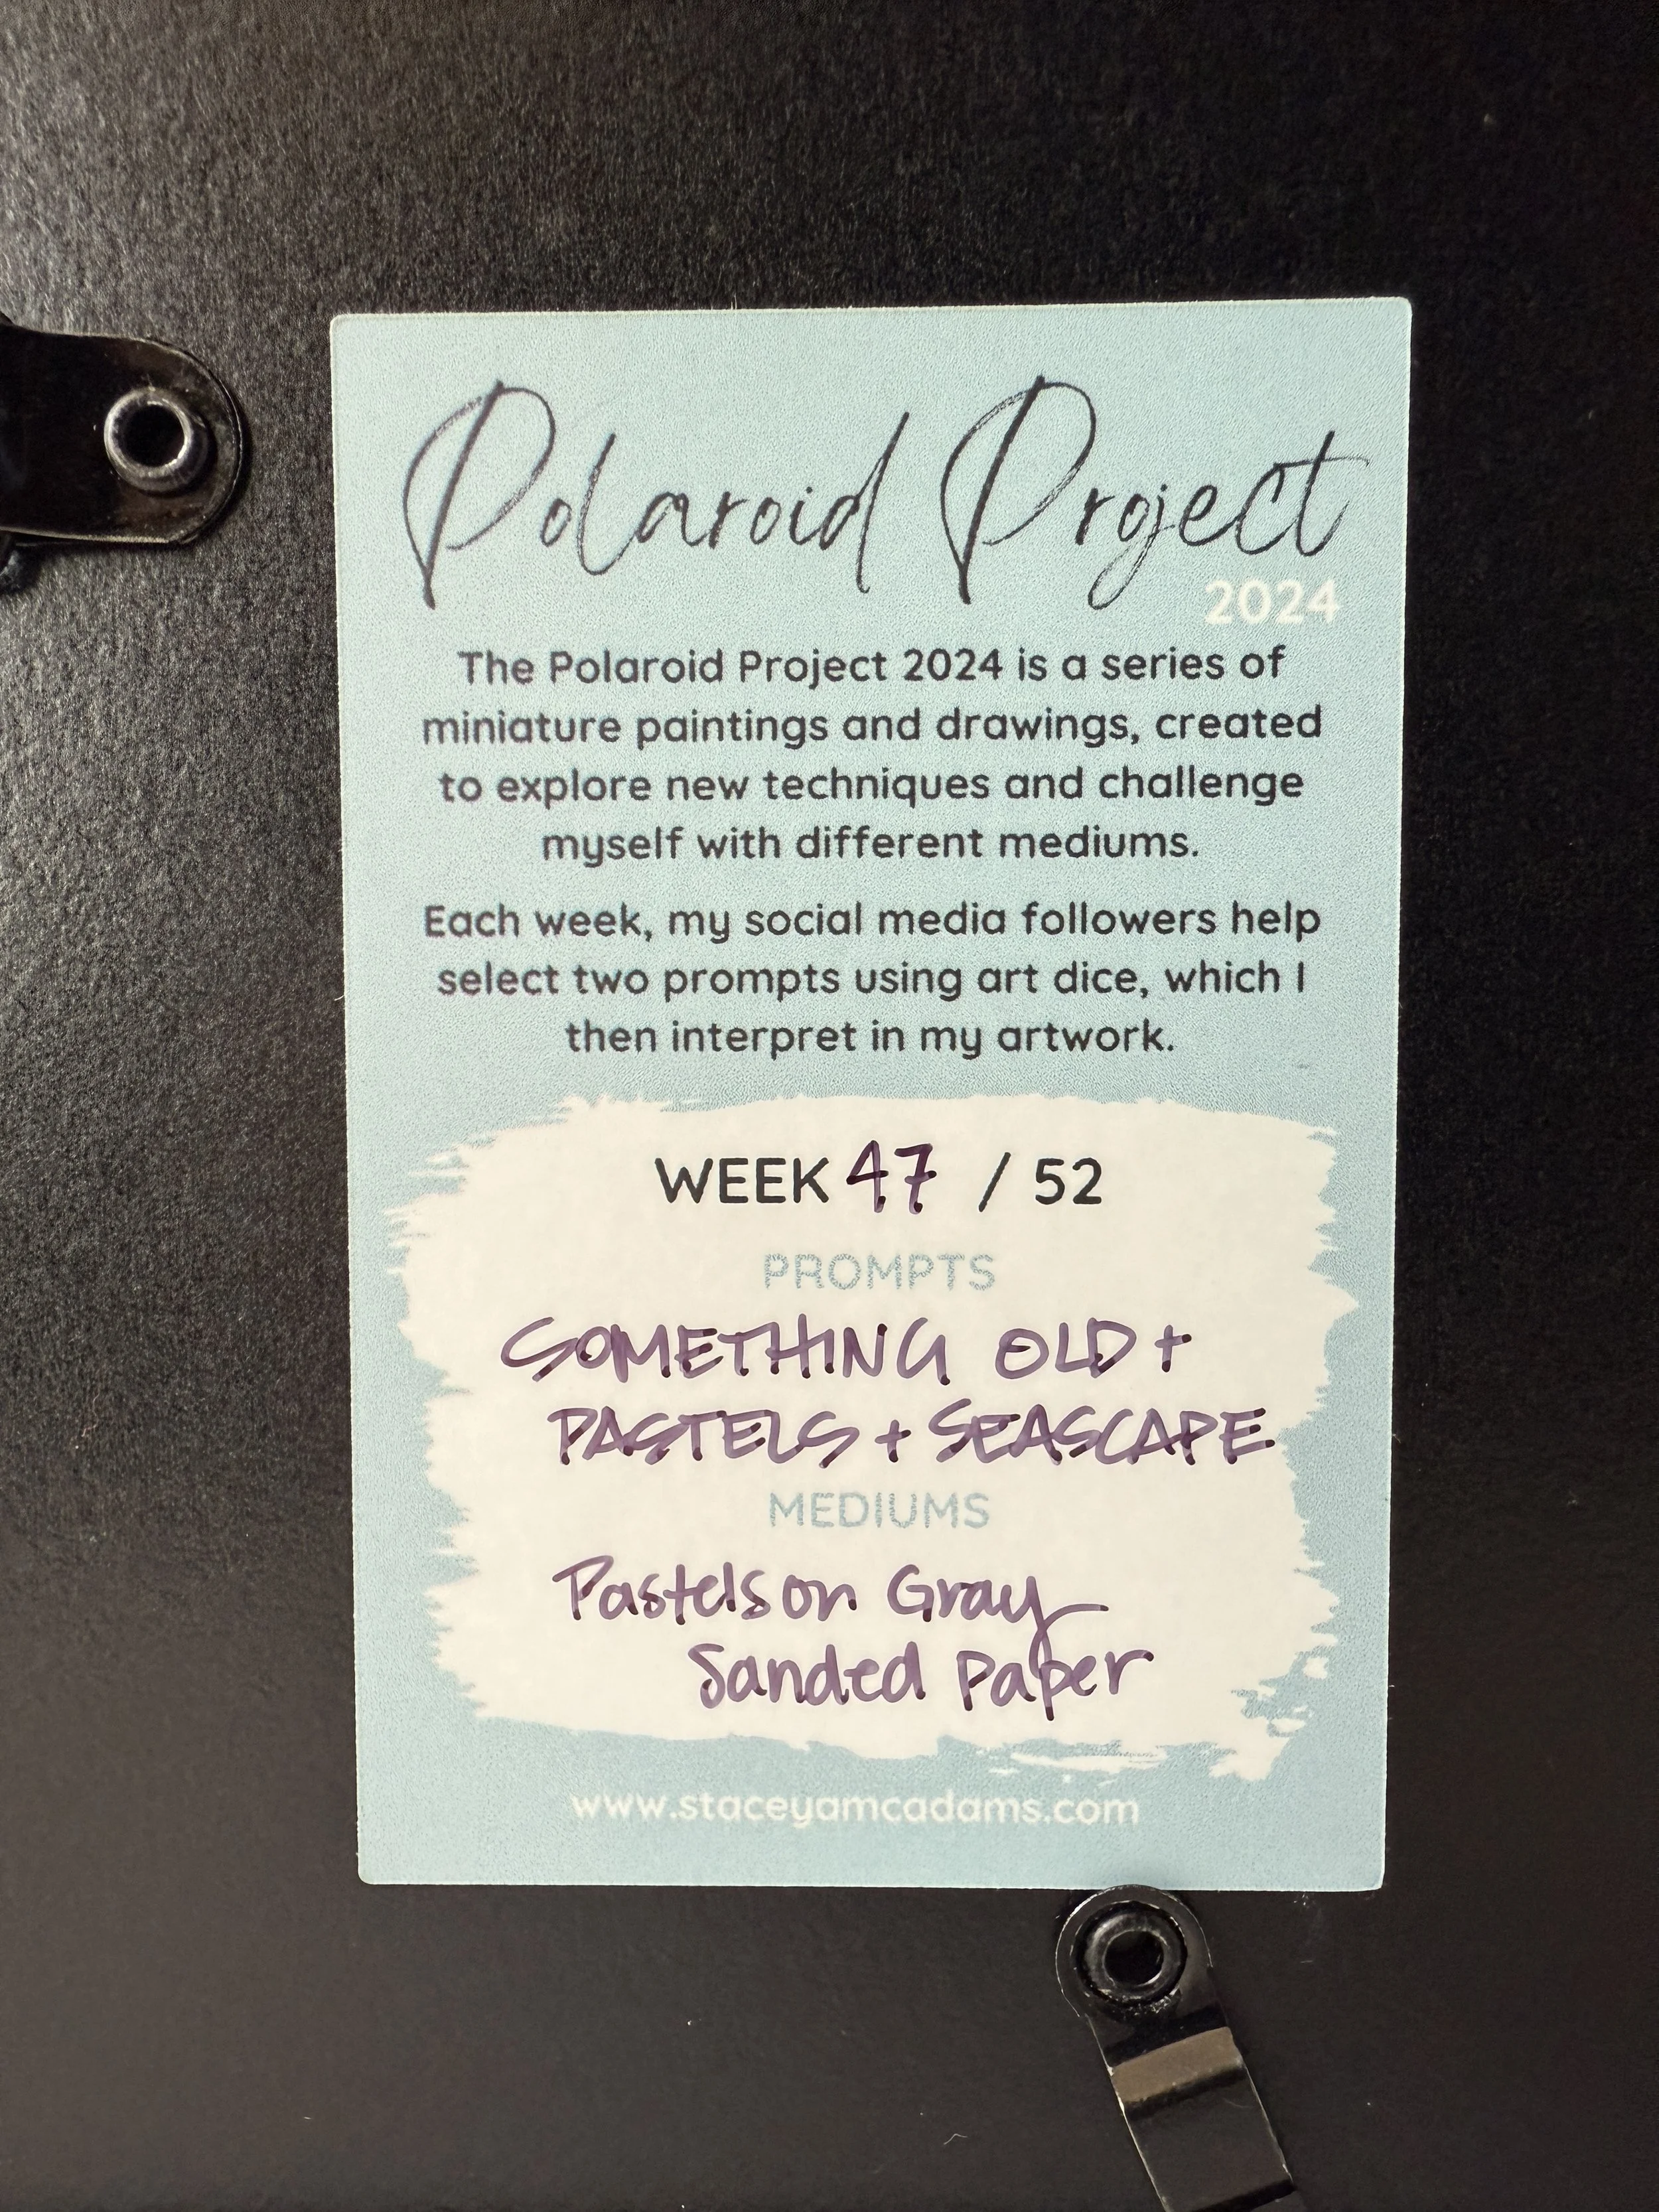 Polaroid Project
2024
The Polaroid Project 2024 is a series of
miniature paintings and drawings, created
to explore new techniques and challenge
myself with different mediums.
Each week, my social media followers help
select two prompts using art dice, which I
then interpret in my artwork.
WEEK 47 / 52
PROMPTS
SOMETHING OLD +
PASTELS + SEASCAPE
MEDIUMS
Pastels on Gray
Sanded Paper
www.staceyamcadams.com